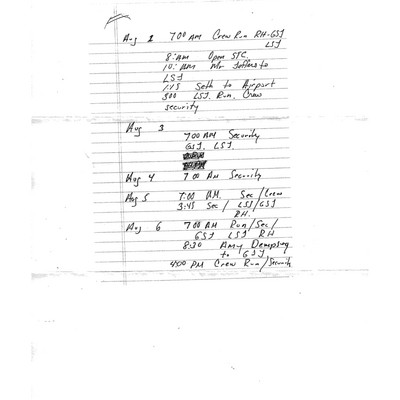 Aug 2 7:00 AM Crew Run RH-GSJ
LSJ
8:AM Open STC.
10:AM Mr Jeffers to
LSJ
1:15 Seth to Airport
500 LSJ. Run. Crew
security
Aug 3
700 AM Security
GSJ. LSJ.
Aug 4 700 AM Security
Aug 5 7:00 AM. Sec/Crew
3:45 Sec/ LSJ/GSJ
RH.
Aug 6 700 AM Run/Sec/
GSJ LSJ RH
8:30 Amy Dempsey
to GSJ
400 PM Crew Run/Security